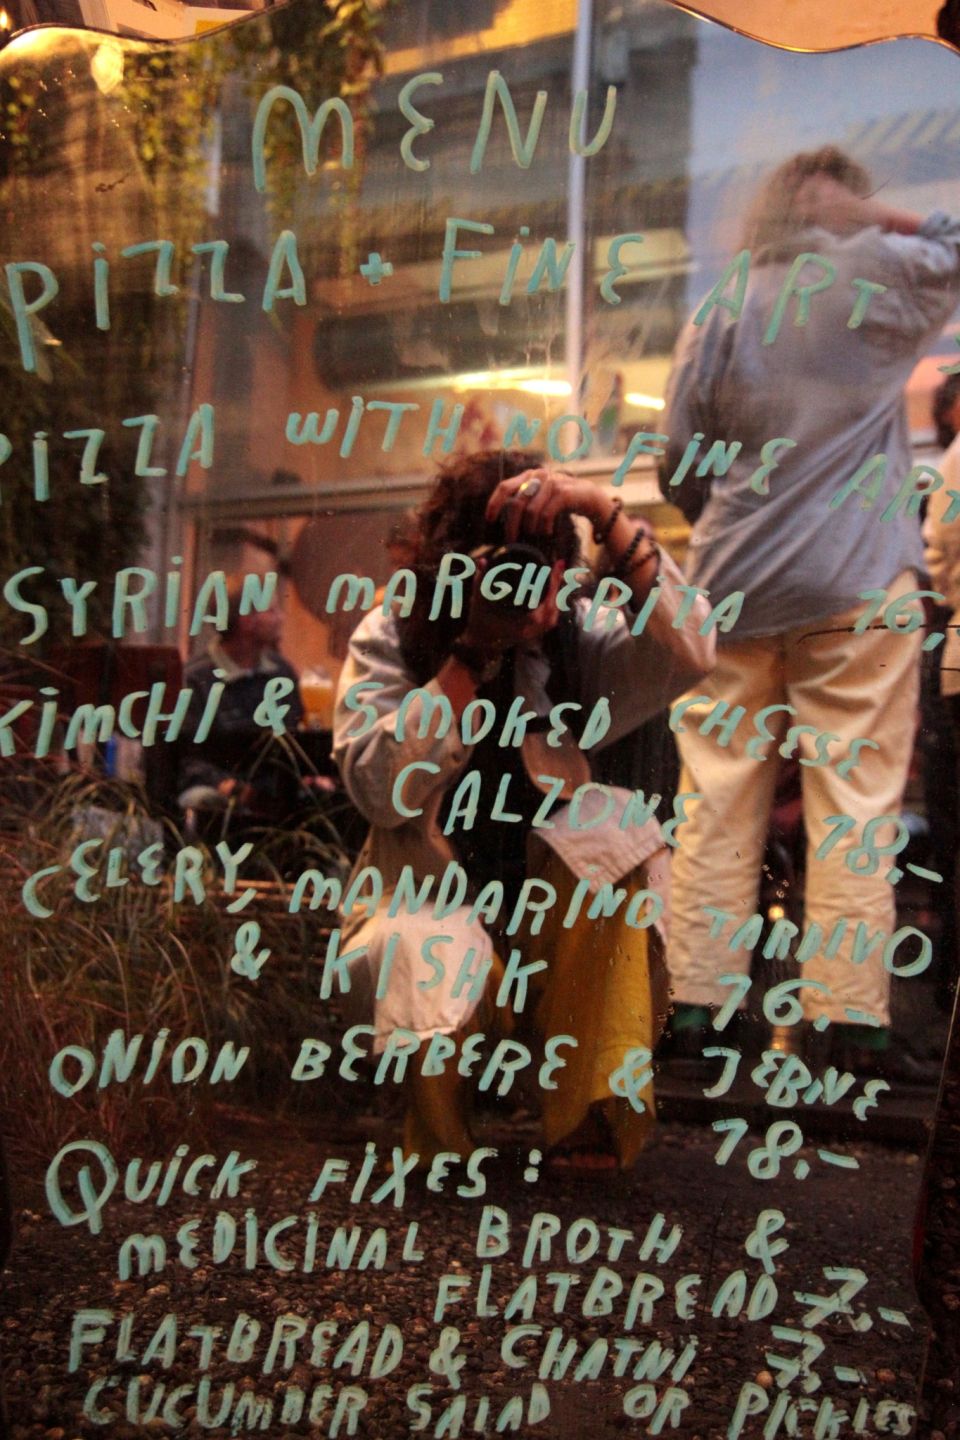 MENU
PIZZA + FINE ART
PIZZA WITH NO FINE ART
SYRIAN MARGHERITA 16,-
KIMCHI & SMOKED CHEESE
CALZONE 18,-
CELERY, MANDARINO TARDIVO
& KISHK 16,-
ONION BERBERE & JEBNE
18,-
QUICK FIXES:
MEDICINAL BROTH &
FLATBREAD 7,-
FLATBREAD & CHATNI
CUCUMBER SALAD OR PICKLES